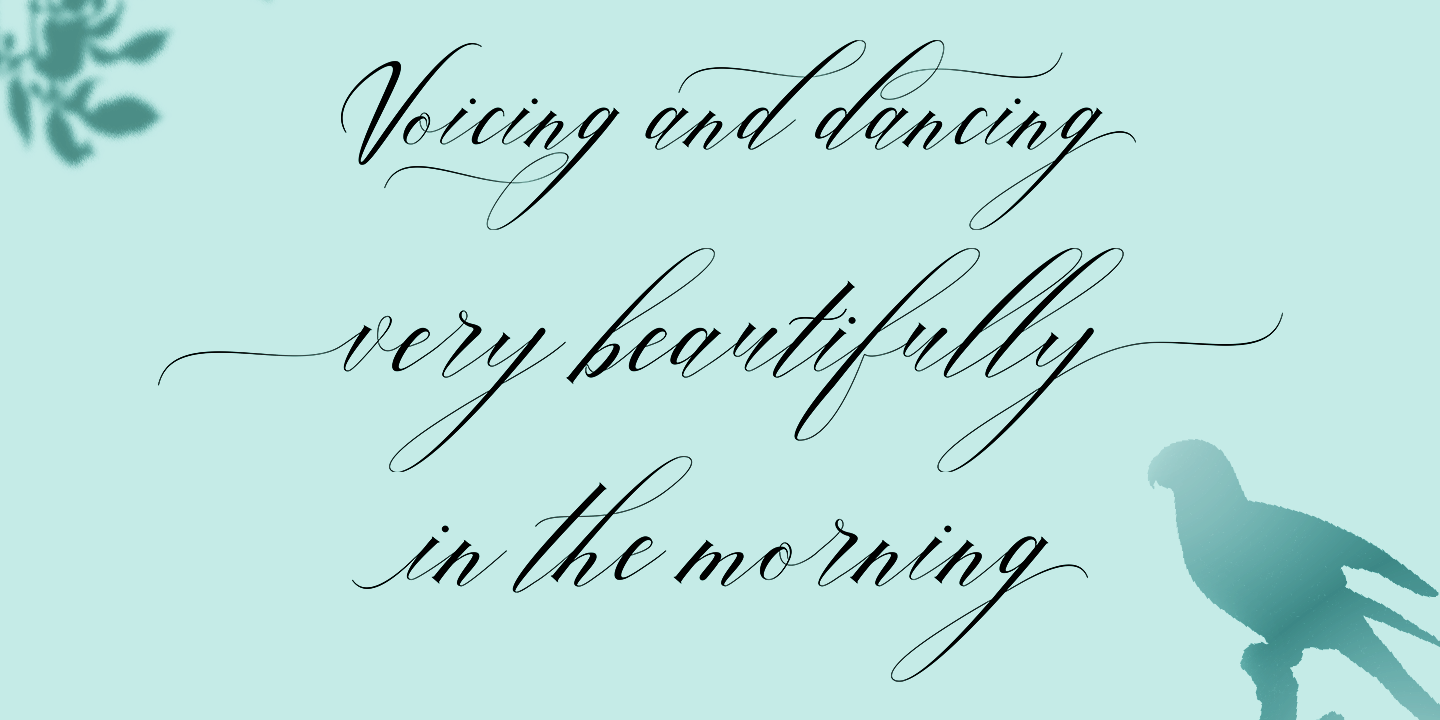 Voicing and dancing
very beautifully
in the morning